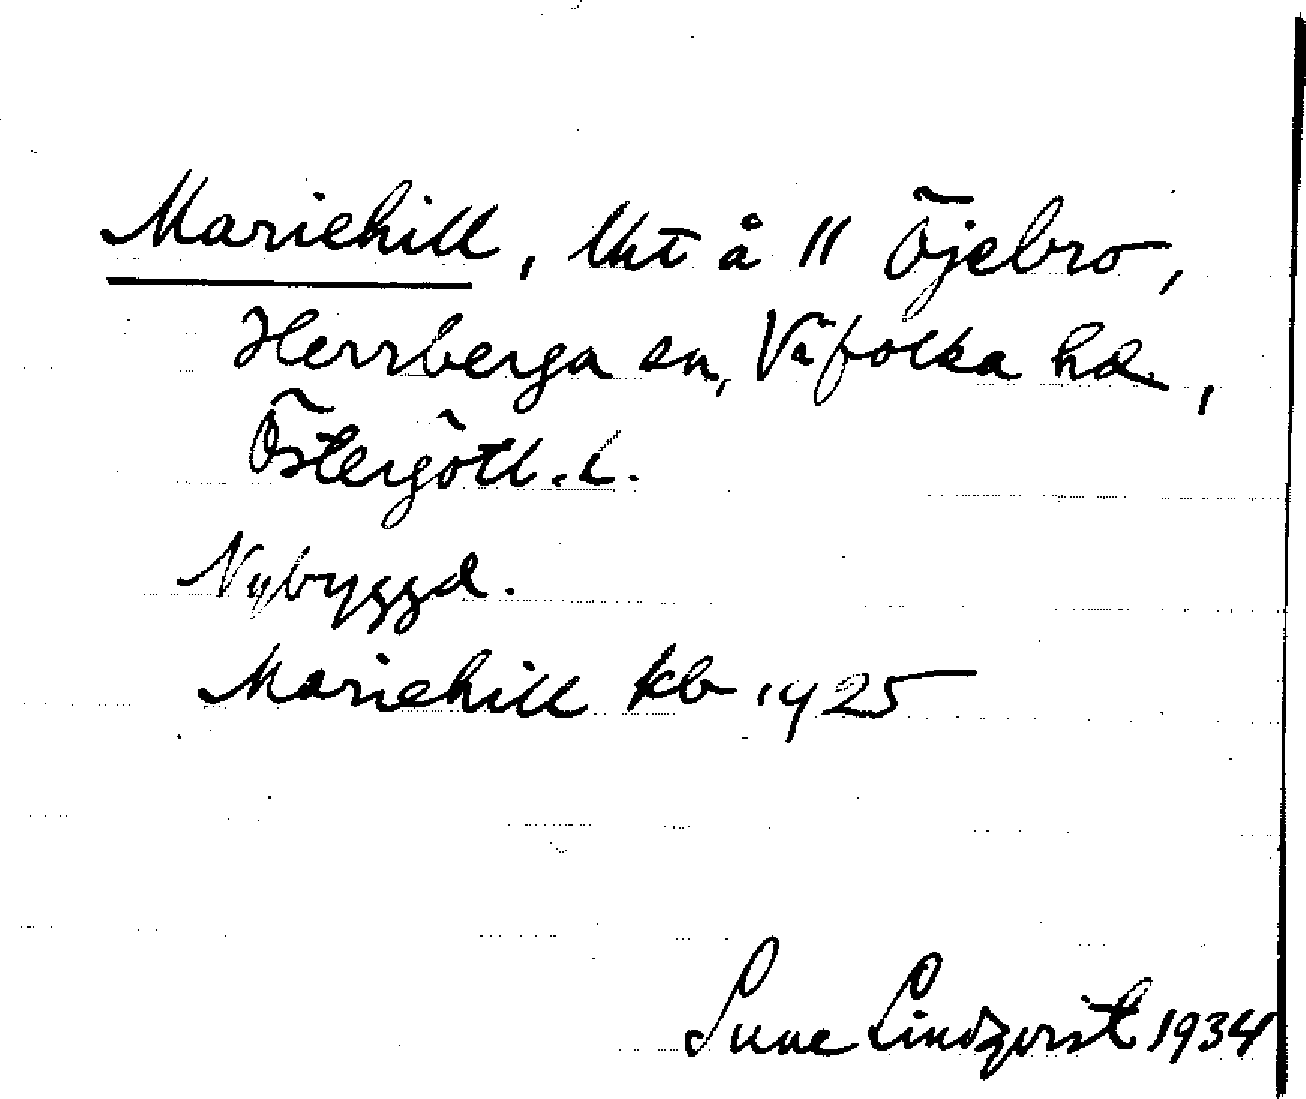 Mariehill, lht å 11 Öjebro,
Herrberga sn, Vifolka hd,
Östergötl. l.
Nybyggd.
Mariehill kb 1925
Sune Lindqvist 1934